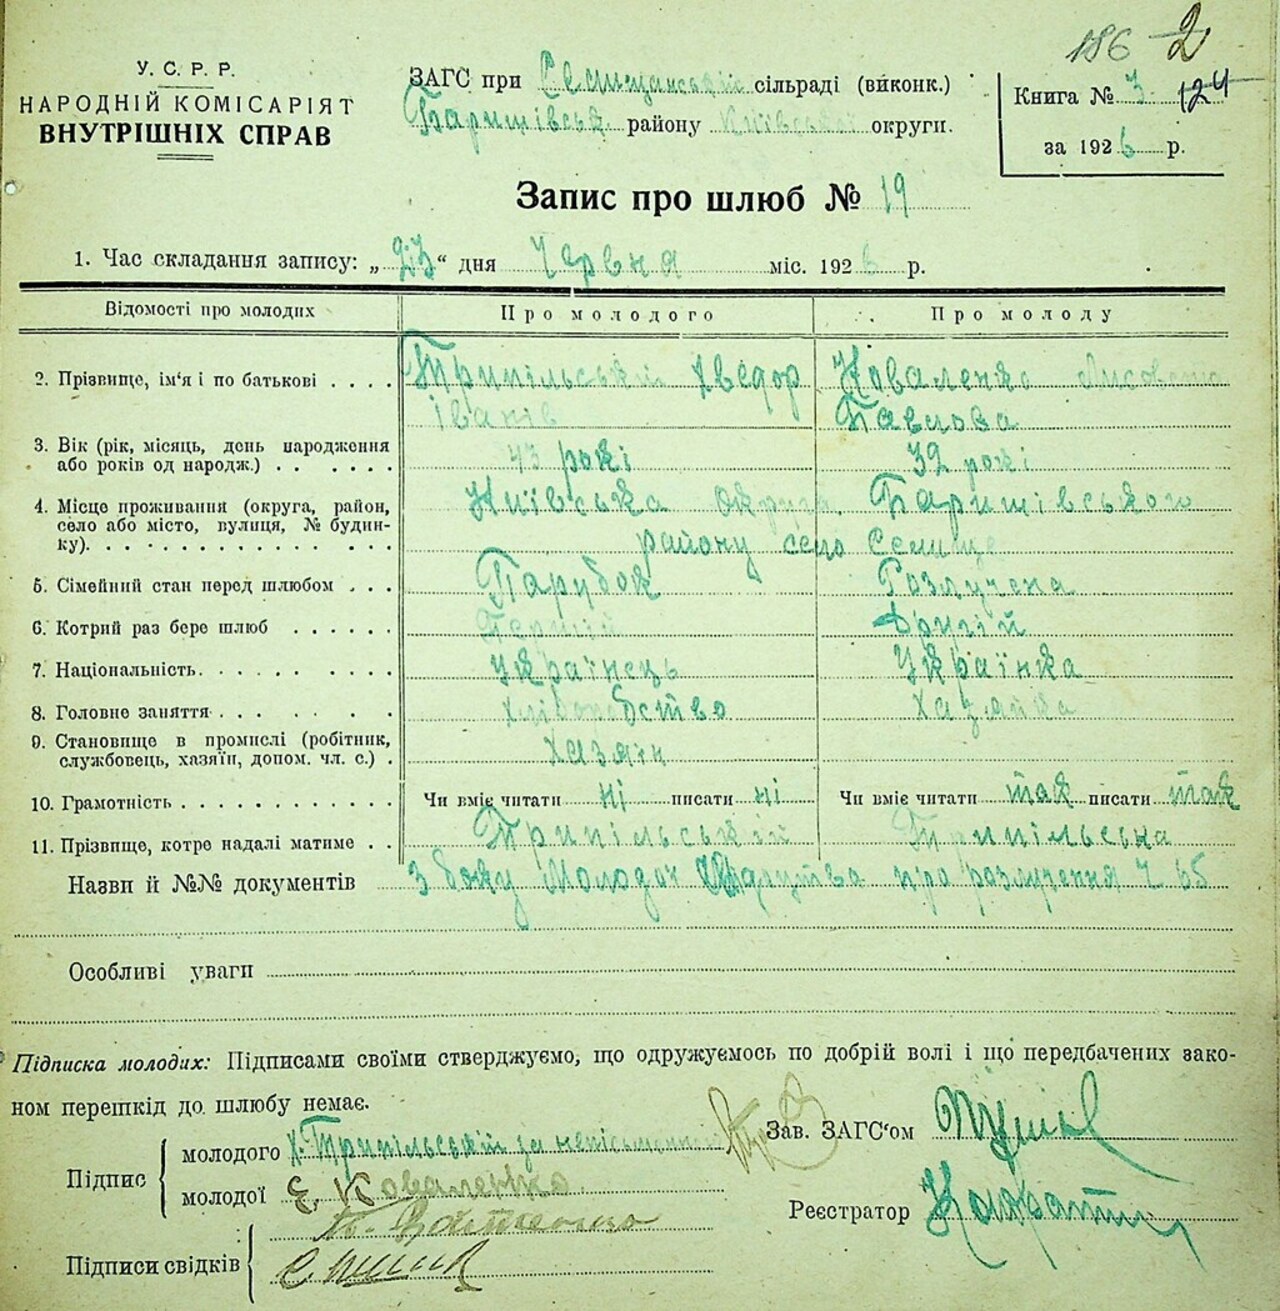 186 2
У. С. Р. Р.
НАРОДНІЙ КОМІСАРІЯТ
ВНУТРІШНІХ СПРАВ
ЗАГС при Селищанській сільраді (виконк.)
Баришівськ. району Київської округи.
Книга № 3 124
за 1926 р.
Запис про шлюб № 19
1. Час складання запису: „23“ дня Червня міс. 1926 р.
Відомості про молодих Про молодого Про молоду
2. Прізвище, ім‘я і по батькові . . . . Трипільський Хведор Коваленко Лисовета
Іванів Павлова
3. Вік (рік, місяць, день народження
або років од народж.) . . . . . . 43 рокі 32 рокі
4. Місце проживання (округа, район,
село або місто, вулиця, № будин-
ку). Київська округа, Баришівського
району село Селище
5. Сімейний стан перед шлюбом . . . Парубок Розлучена
6. Котрий раз бере шлюб . . . . . . Перший Другій
7. Національність. Українець Українка
8. Головне заняття Хліборобство Хазяйка
9. Становище в промислі (робітник,
службовець, хазяїн, допом. чл. с.) . Хазяїн
10. Грамотність Чи вміє читати ні писати ні Чи вміє читати так писати так
11. Прізвище, котре надалі матиме . . Трипільській Трипільська
Назви й №№ документів З боку Молодої про розлучення Ч 65
Особливі уваги
Підписка молодих: Підписами своїми стверджуємо, що одружуємось по добрій волі і що передбачених зако-
ном перешкід до шлюбу немає.
Підпис
молодого Х. Трипільській за неписьменній
молодої Є. Коваленко
Підписи свідків
Зав. ЗАГС‘ом
Реєстратор